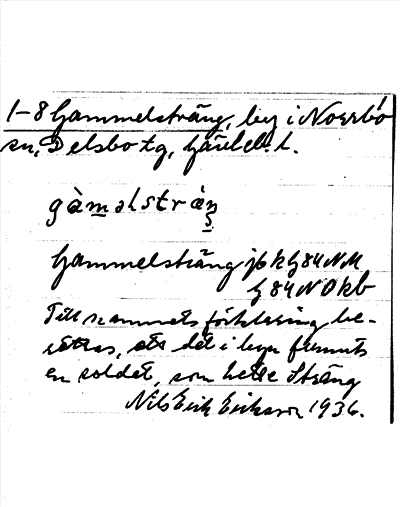 1-8 Gammelsträng, by i Norrbo
sn, Delsbo tg, Gävleb. l.
gàməlstràŋ
Gammelsträng jb k G 84 NM
G 84 N O kb
Till namnets förklaring be-
rättas, att det i byn funnits
en soldat, som hette Sträng
Nils Erik Eriksson 1936.